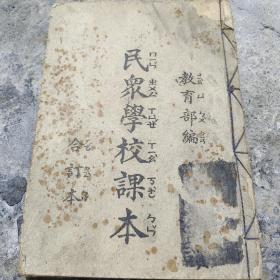 教育部編
民衆學校課本
合訂本